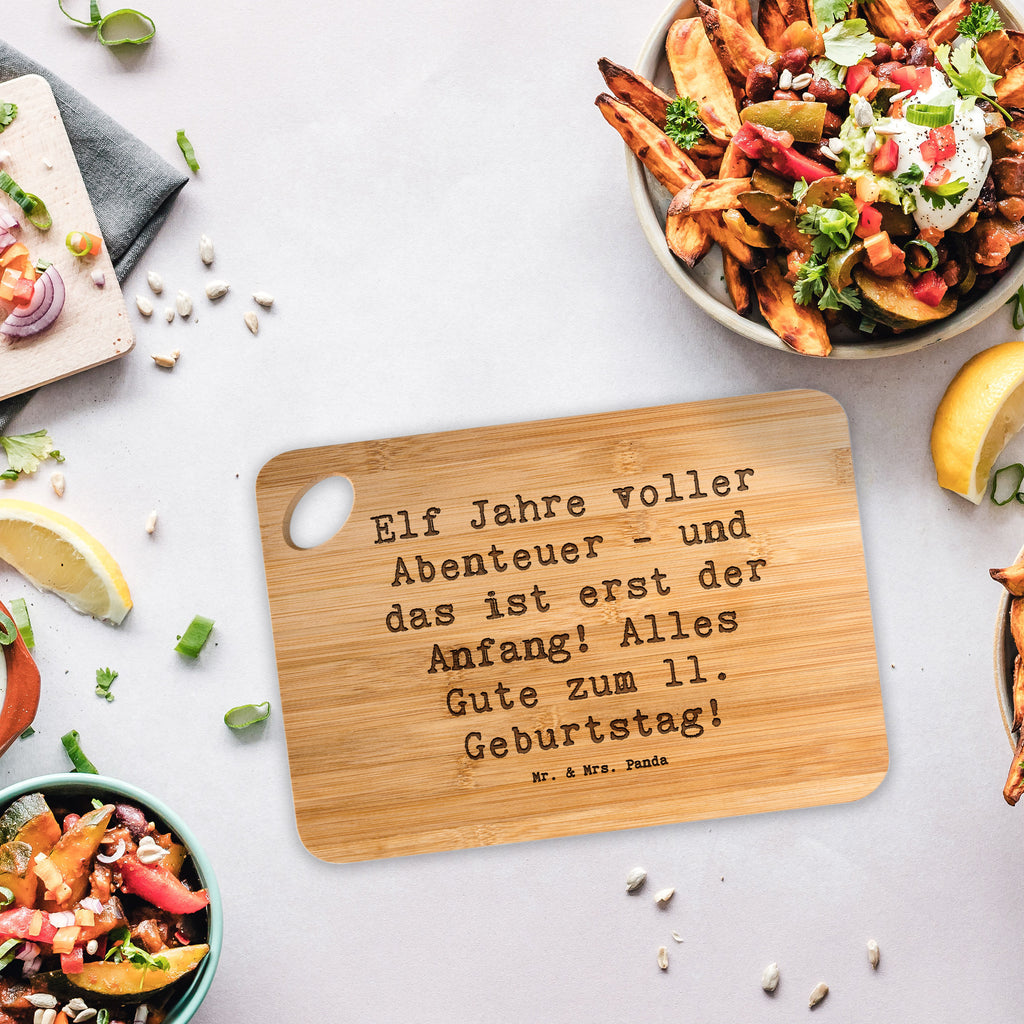 Elf Jahre voller
Abenteuer – und
das ist erst der
Anfang! Alles
Gute zum 11.
Geburtstag!
Mr. & Mrs. Panda